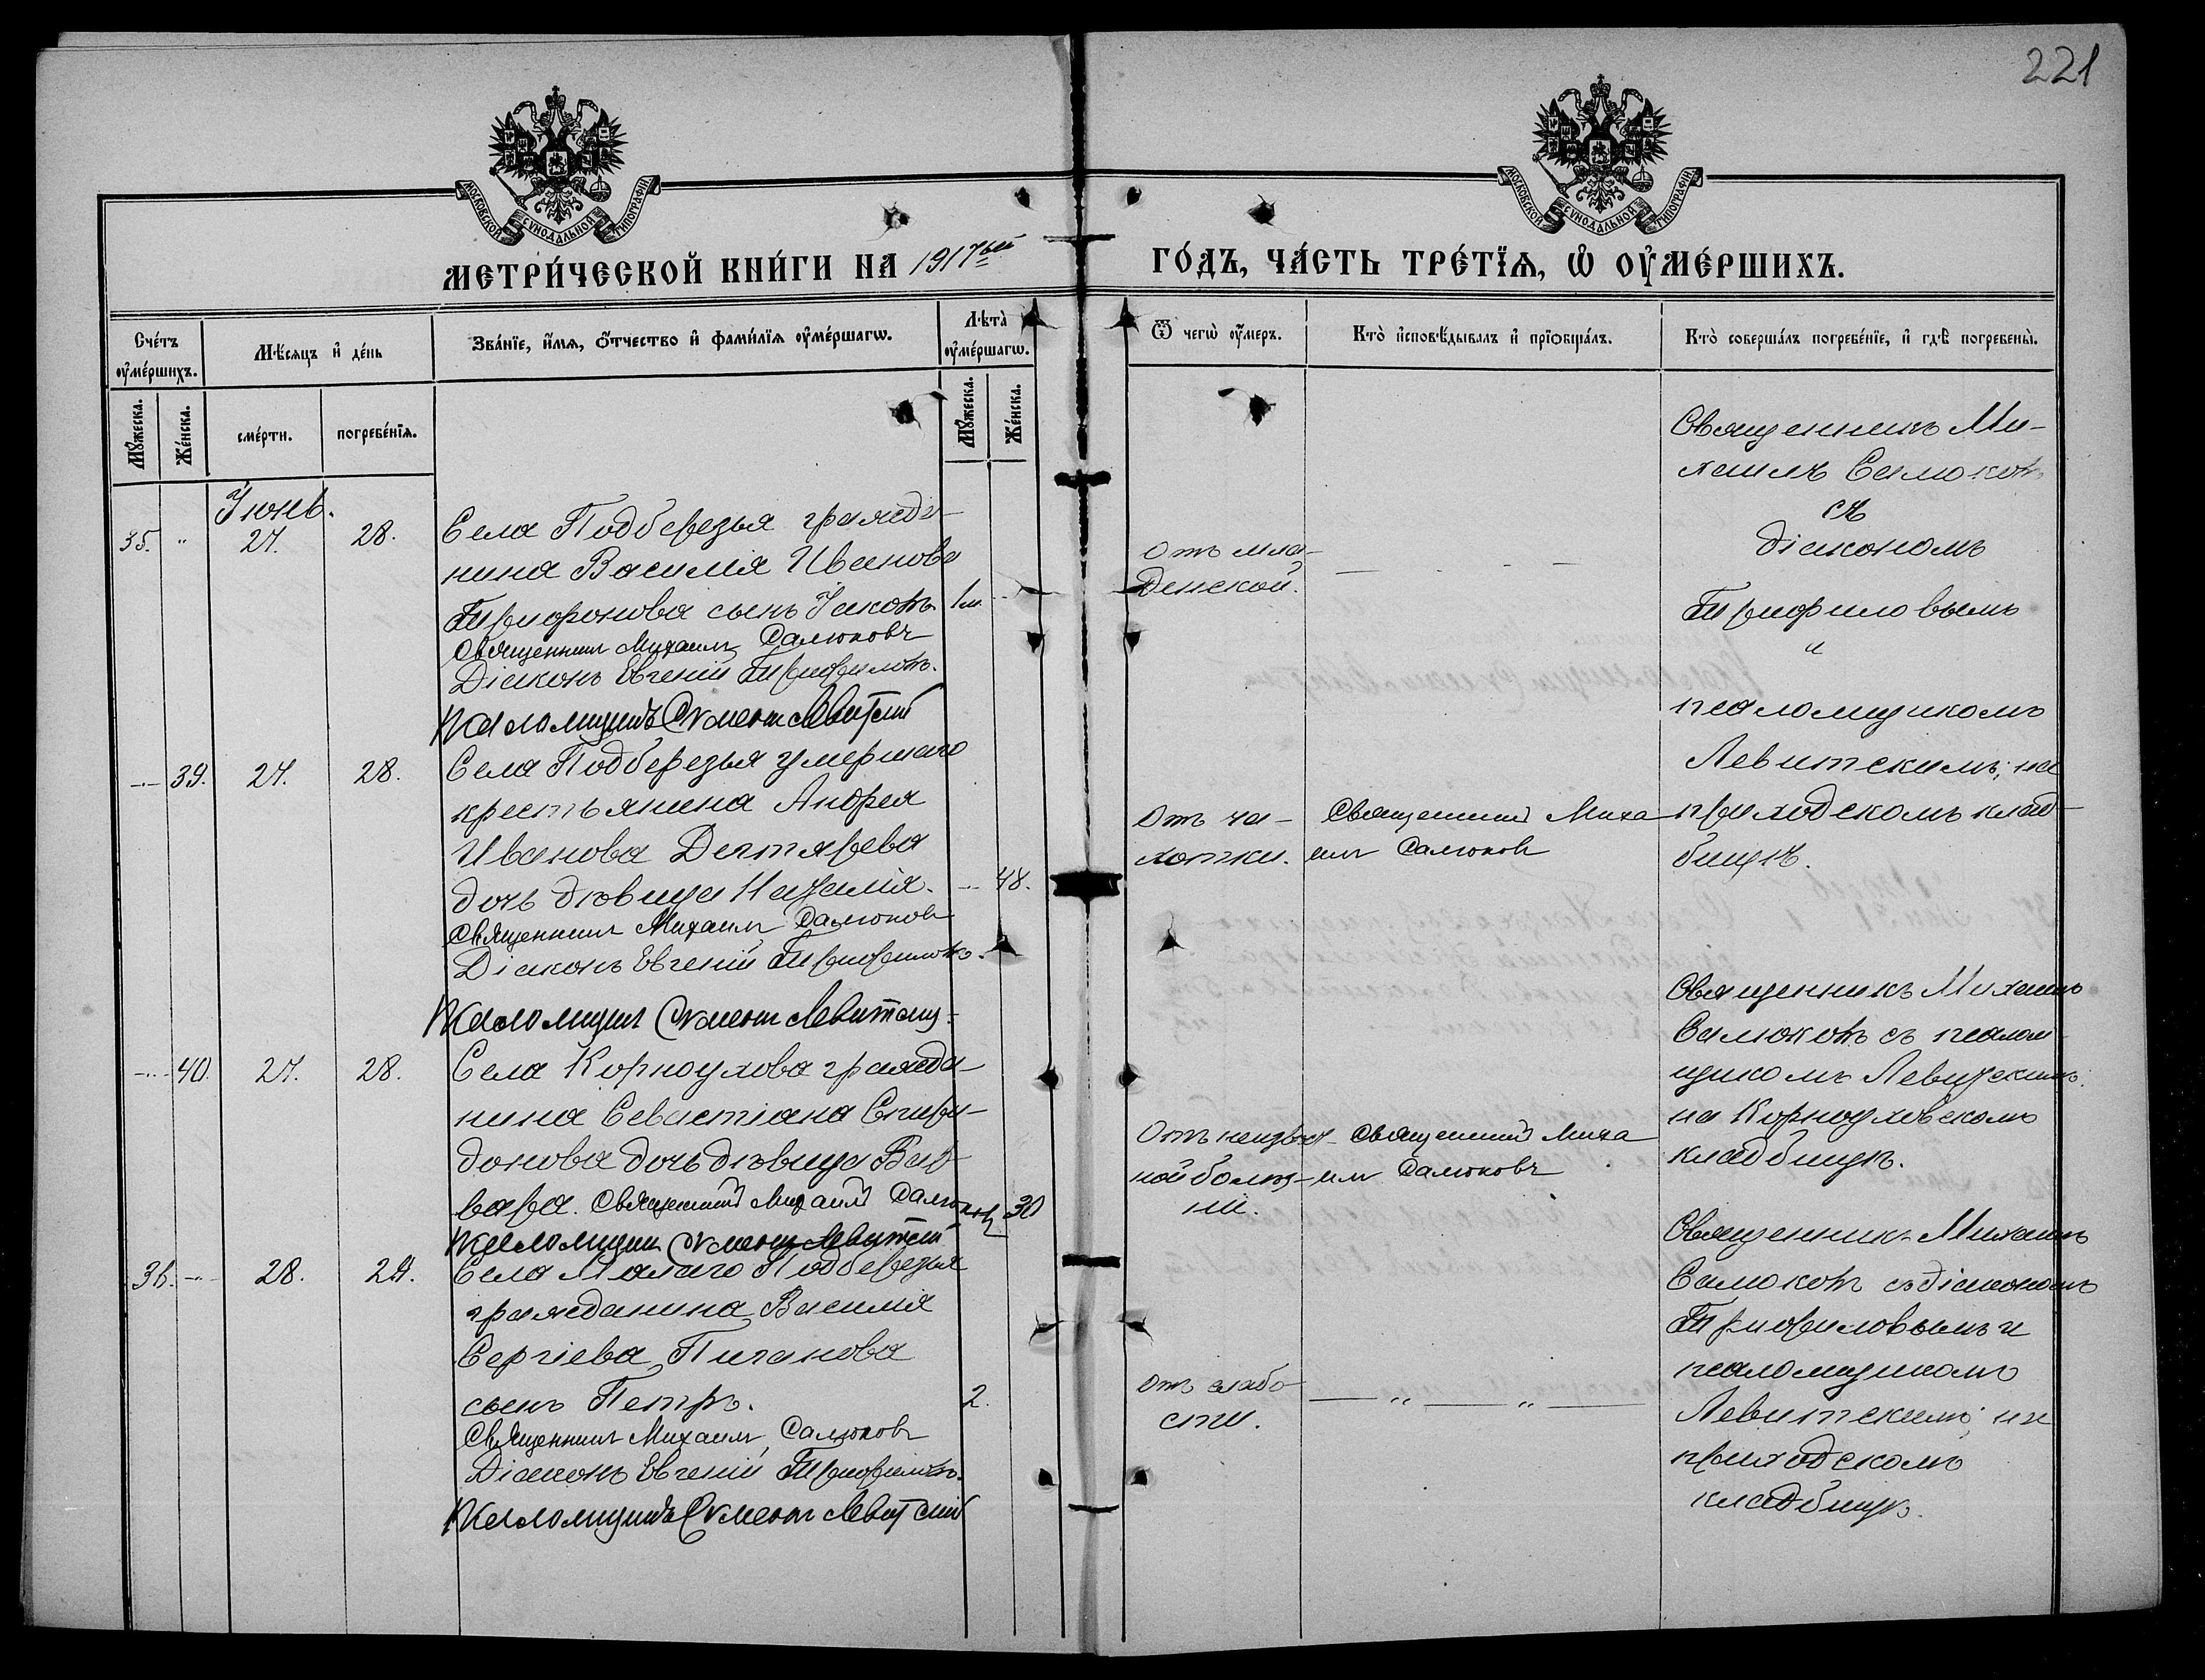 221
МОСКОВСКОЙ СѴНОДАЛЬНОЙ ТИПОГРАФІИ
МОСКОВСКОЙ СѴНОДАЛЬНОЙ ТИПОГРАФІИ
МЕТРИ́ЧЕСКОЙ КНИ́ГИ НА 1917ый ГО́ДЪ, ЧА́СТЬ ТРЕ́ТЇѦ, Ѡ ОУ҆МЕ́РШИХЪ.
Сче́тъ оу҆ме́ршихъ.
Мѣ́сяцъ и҆ де́нь
Зва́нїе, и҆́мѧ, ѻ҆́тчество и҆ фами́лїѧ оу҆ме́ршагѡ.
Лѣта̀ оу҆ме́ршагѡ.
Ѿ чегѡ̀ оу҆́меръ.
Кто̀ и҆сповѣ́дывалъ и҆ прїѡбща́лъ.
Кто̀ соверша́лъ погребе́нїе, и҆ гдѣ̀ погребены̀.
Мꙋ́жеска.
Же́нска.
сме́рти.
погребе́нїѧ.
Мꙋ́жеска.
Же́нска.
Іюнь.
35. " 27. 28.
Села Подберезья гражда-
нина Василія Иванова
Трифонова сынъ Іаковъ. 1 м.
Священникъ Михаилъ Самоковъ
Діаконъ Евгеній Трифиловъ.
Псаломщикъ Климентъ Левитскій
Отъ мла-
денской.
Священникъ Ми-
хаилъ Самоковъ
съ
діакономъ
Трифиловымъ
и
псаломщикомъ
Левитскимъ; на
приходскомъ клад-
бищѣ.
39. 27. 28.
Села Подберезья умершаго
крестьянина Андрея
Иванова Дегтярева
дочь дѣвица Наталія. 48.
Священникъ Михаилъ Самоковъ
Діаконъ Евгеній Трифиловъ.
Псаломщикъ Климентъ Левитскій
Отъ ча-
хотки.
Священникъ Миха-
илъ Самоковъ
40. 27. 28.
Села Корноухова гражда-
нина Севастіана Спири-
донова дочь дѣвица Вар-
вара. Священникъ Михаилъ Самоковъ 30
Псаломщикъ Климентъ Левитскій
Отъ неизвѣст-
ной болѣз-
ни.
Священникъ Миха-
илъ Самоковъ
Священникъ Михаилъ
Самоковъ съ псалом-
щикомъ Левитскимъ;
на Корноуховскомъ
кладбищѣ.
36. 28. 29.
Села Малаго Подберезья
гражданина Василія
Сергіева Пиганова
сынъ Петръ. 2.
Священникъ Михаилъ Самоковъ
Діаконъ Евгеній Трифиловъ.
Псаломщикъ Климентъ Левитскій
Отъ слабо-
сти.
Священникъ Михаилъ
Самоковъ съ діакономъ
Трифиловымъ и
псаломщикомъ
Левитскимъ; на
приходскомъ
кладбищѣ.